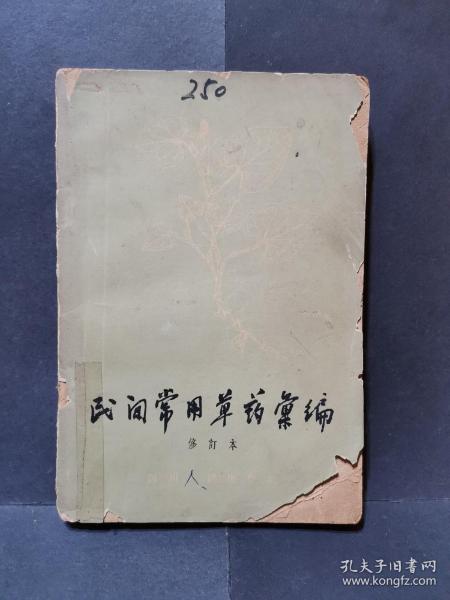 250
民间常用草药彙编
修訂本
人
孔夫子旧书网
www.kongfz.com